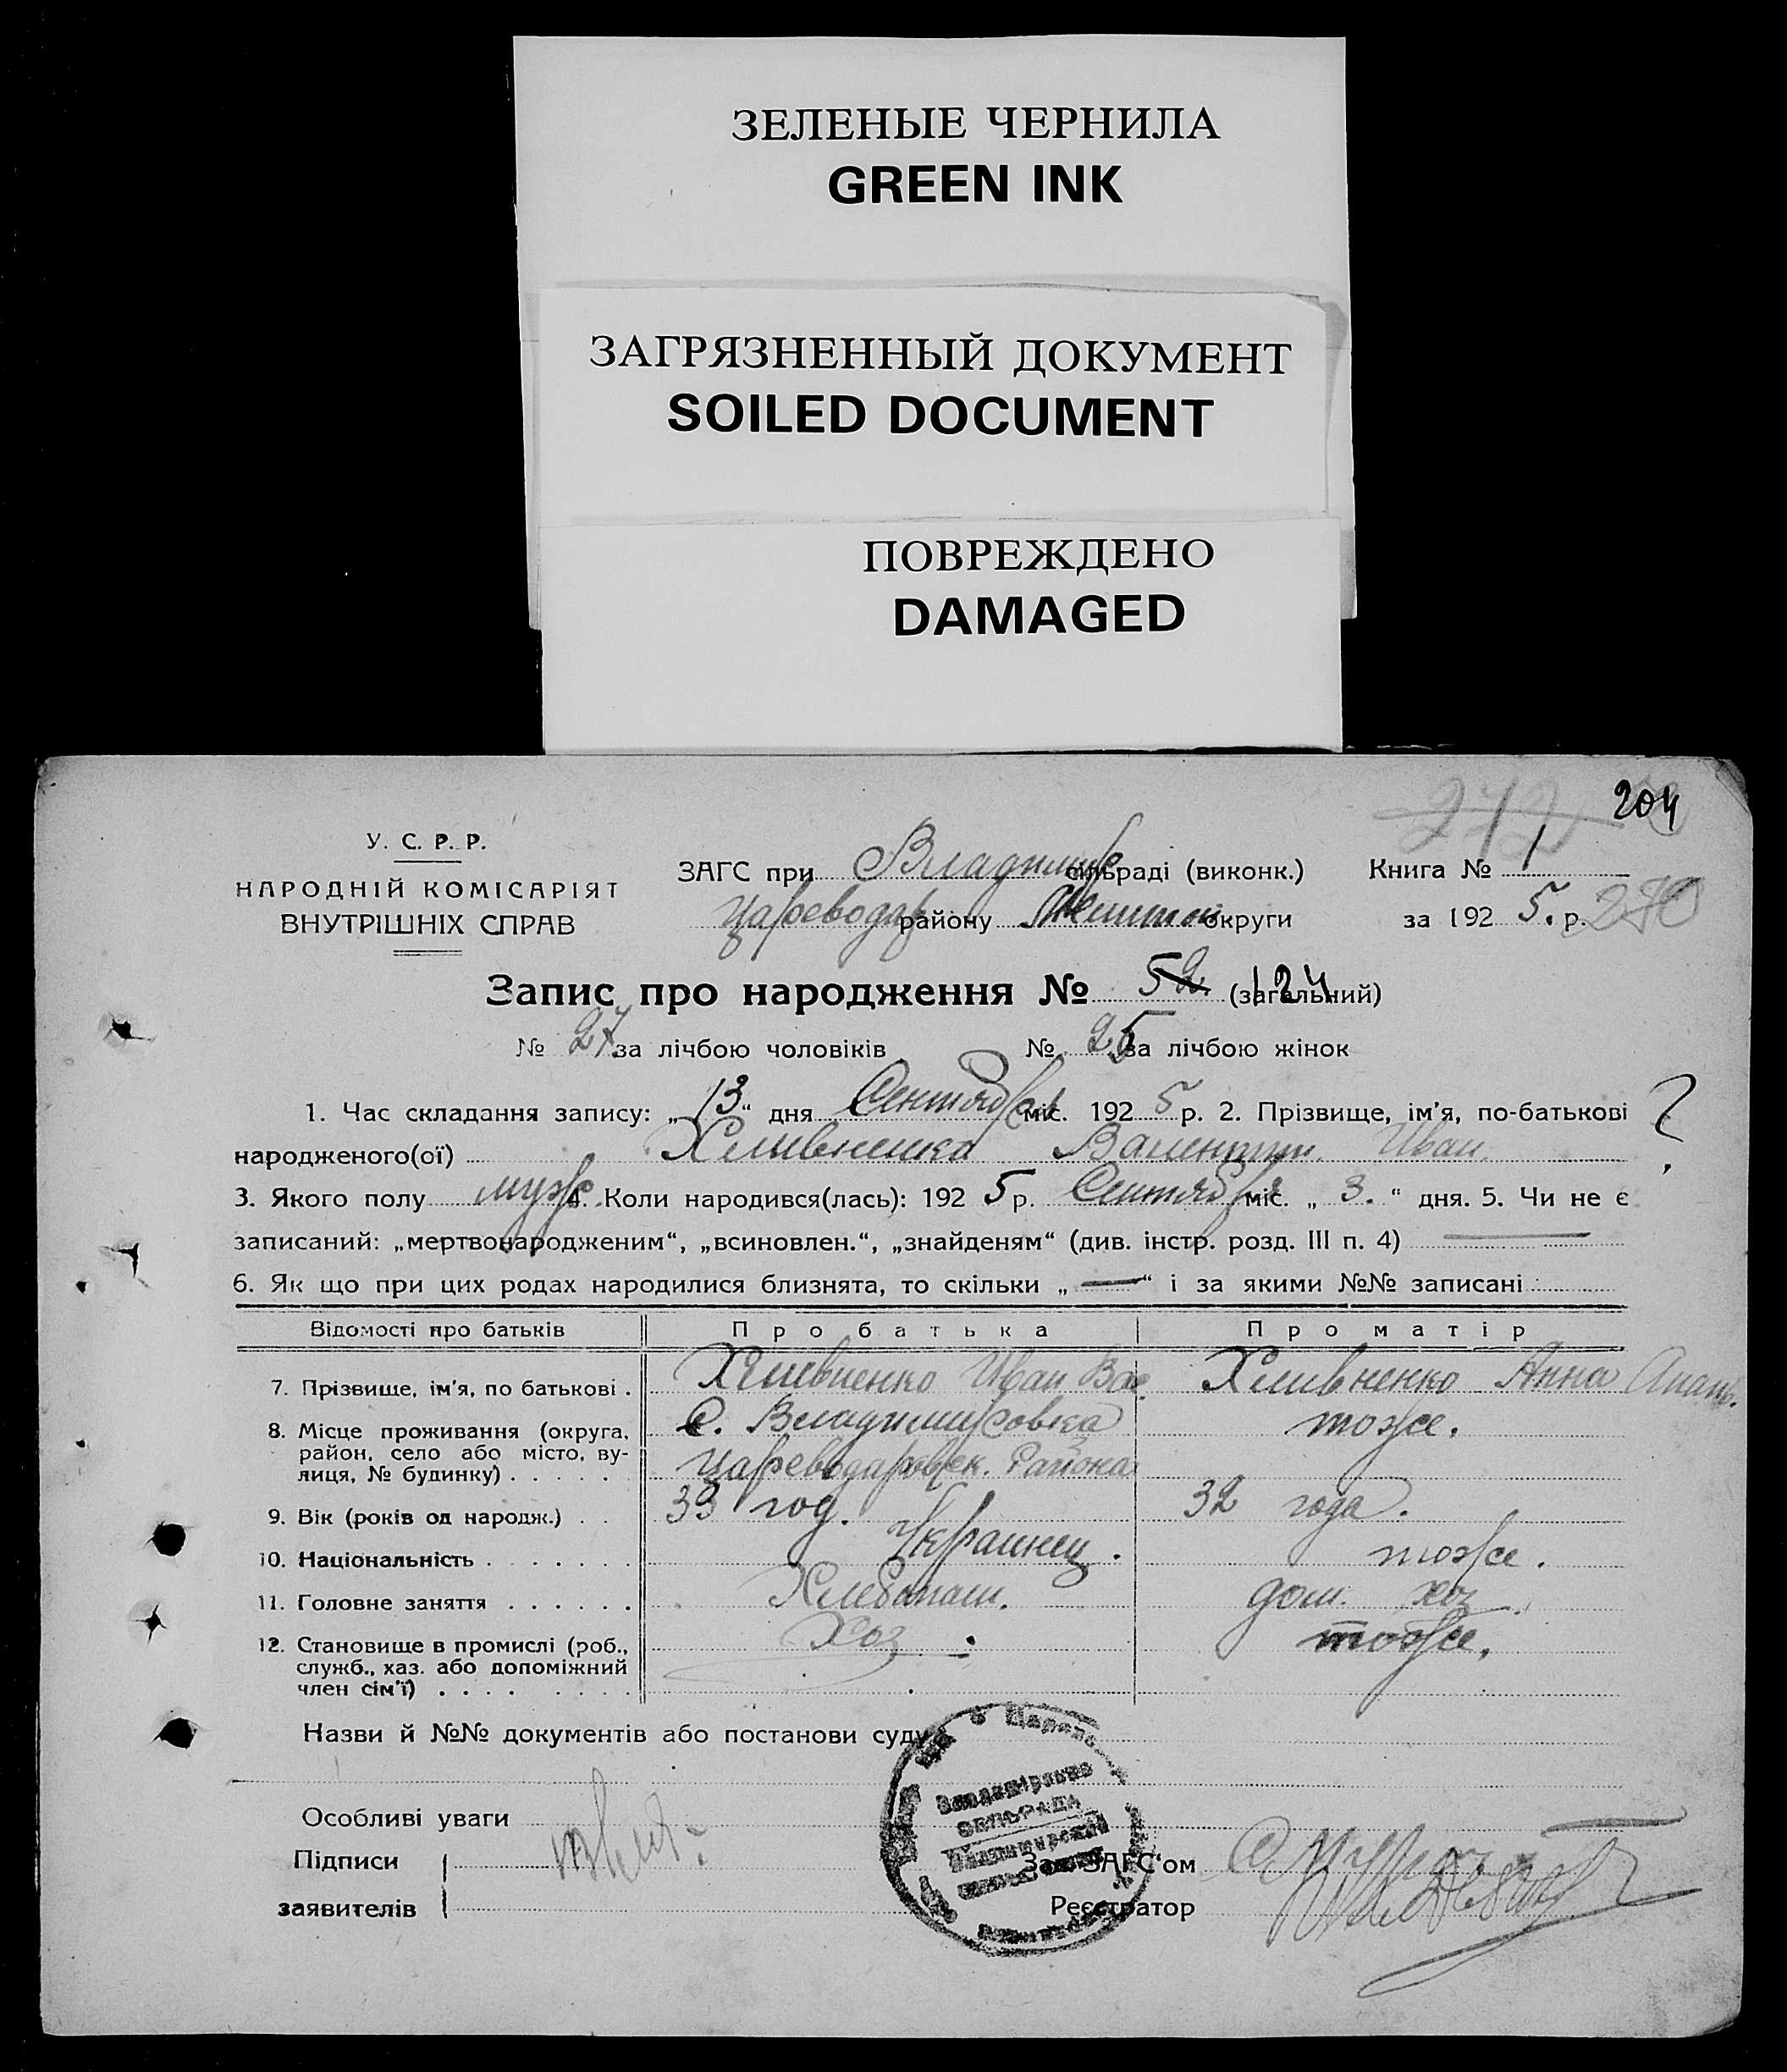 ЗЕЛЕНЫЕ ЧЕРНИЛА
GREEN INK
ЗАГРЯЗНЕННЫЙ ДОКУМЕНТ
SOILED DOCUMENT
ПОВРЕЖДЕНО
DAMAGED
212 204
У. С. Р. Р.
НАРОДНІЙ КОМІСАРІЯТ
ВНУТРІШНІХ СПРАВ
ЗАГС при Владимир сільраді (виконк.) Книга № 1
Цареводар району округи за 192 5. р. 270
Запис про народження № 52. (загальний) 124
№ 27 за лічбою чоловіків № 25 за лічбою жінок
1. Час складання запису: „13“ дня Сентября міс. 192 5 р. 2. Прізвище, ім'я, по-батькові ?
народженого(ої) Хливненко Валентин. Иван.
3. Якого полу муж. 4. Коли народився(лась): 192 5 р. Сентября міс. „ 3. “ дня. 5. Чи не є
записаний: „мертвонародженим“, „всиновлен.“, „знайденям“ (див. інстр. розд. III п. 4) —
6. Як що при цих родах народилися близнята, то скільки „ — “ і за якими №№ записані
Відомості про батьків Про батька Про матір
7. Прізвище, ім'я, по батькові . Хливненко Иван Вас. Хливненко Анна Анан.
8. Місце проживання (округа, район, село або місто, вулиця, № будинку) с. Владимировка тоже.
Цареводаровск. Района
9. Вік (років од народж.) 33 год. 32 года.
10. Національність Украинец. тоже.
11. Головне заняття Хлебопаш. дом. хоз.
12. Становище в промислі (роб., Хоз. тоже.
служб., хаз. або допоміжний
член сім'ї)
Назви й №№ документів або постанови суду
Особливі уваги
Підписи
заявителів
СЕЛЬРАДА
Зав. ЗАГС'ом
Реєстратор